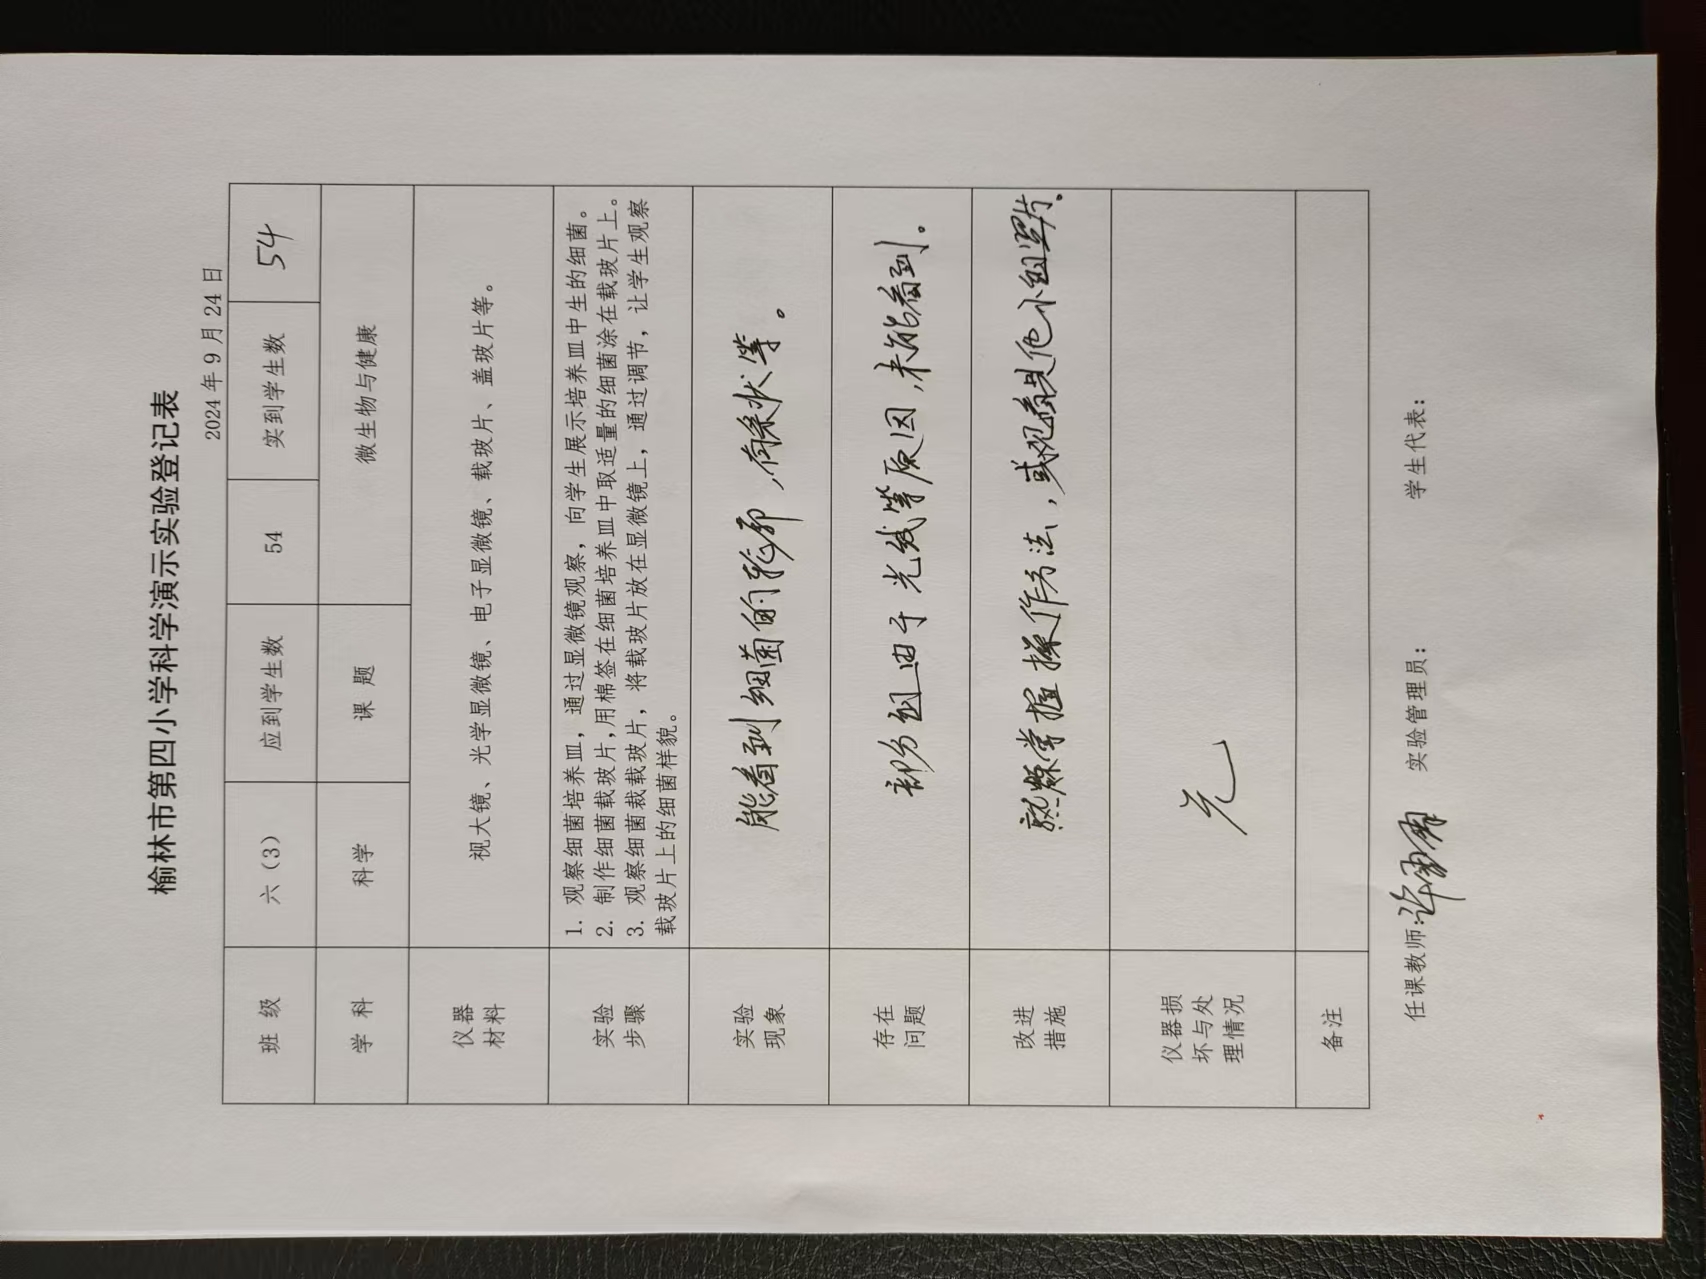 榆林市第四小学科学演示实验登记表
2024 年 9 月 24 日
班 级 六（3） 应到学生数 54 实到学生数 54
学 科 科学 课 题 微生物与健康
仪器
材料
视大镜、光学显微镜、电子显微镜、载玻片、盖玻片等。
实验
步骤
1. 观察细菌培养皿，通过显微镜观察，向学生展示培养皿中生的细菌。
2. 制作细菌载玻片,用棉签在细菌培养皿中取适量的细菌涂在载玻片上。
3. 观察细菌裁载玻片，将载玻片放在显微镜上，通过调节，让学生观察
载玻片上的细菌样貌。
实验
现象
能看到细菌的轮廓，有条状等。
存在
问题
部分组由于光线等原因，未能看到。
改进
措施
熟练掌握操作方法，或观看其他小组照片。
仪器损
坏与处
理情况
无
备注
任课教师: 实验管理员： 学生代表：